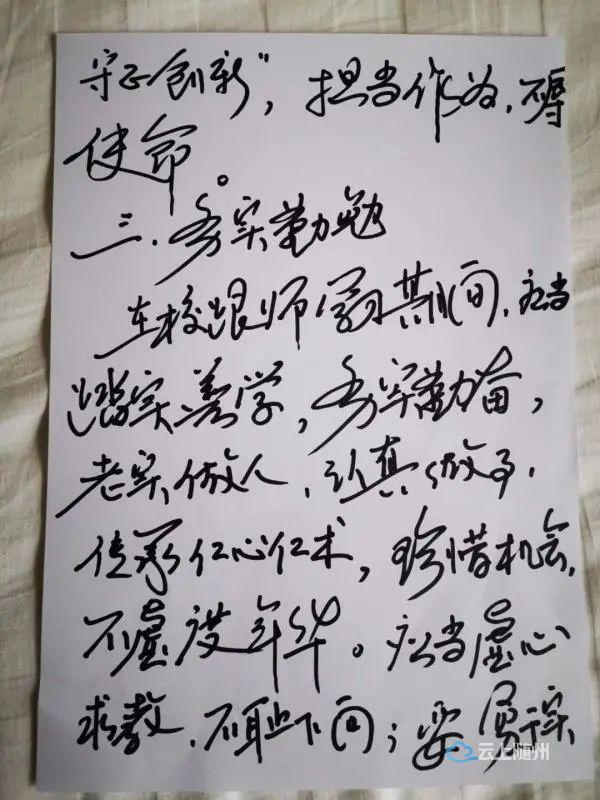 守正创新”，担当作为，不辱
使命。
三、务实勤勉
在校跟师学习其间，应当
踏实善学，务实勤奋，
老实做人，认真做事，
传承仁心仁术，珍惜机会，
不虚度年华。应当虚心
求教，不耻下问；要勇于实
云上随州